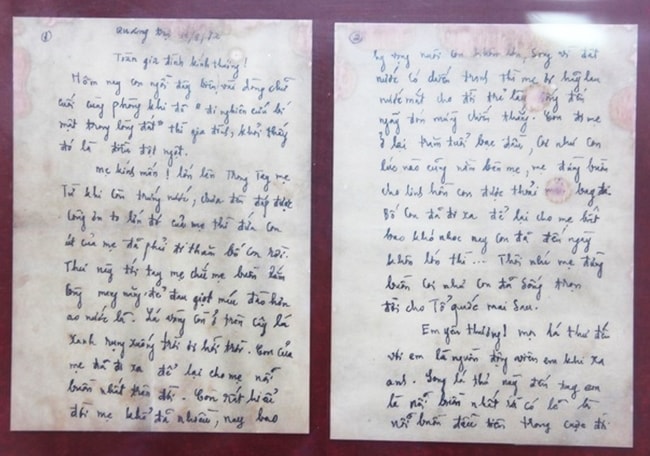 1
Quảng Trị 11/9/72
Toàn gia đình kính thương!
Hôm nay con ngồi đây biên vài dòng chữ
cuối cùng phòng khi đã "đi nghiên cứu bí
mật trong lòng đất" thì gia đình khỏi thấy
đó là điều đột ngột.
Mẹ kính mến! lớn lên trong tay mẹ
Từ khi còn trứng nước, chưa đền đáp được
công ơn to lớn đó của mẹ thì đứa con
út của mẹ đã phải đi theo bố con rồi.
Thư này tới tay mẹ chắc mẹ buồn lắm
lòng may đau giọt máu đào hơn
ao nước lã. Lá vàng còn ở trên cây lá
xanh rụng xuống trời ơi hỡi trời. Con của
mẹ đã đi xa để lại cho mẹ nỗi
buồn nhất trên đời. Con rất hiểu
đời mẹ khổ đã nhiều, nay bao
2
hy vọng nuôi con khôn lớn, song vì đất
nước có chiến tranh thì mẹ ơi hãy lau
nước mắt cho đời trẻ lại sống đến
ngày đón mừng chiến thắng. Con đi mẹ
ở lại trăm tuổi bạc đầu, coi như con
lúc nào cũng nằm bên mẹ, mẹ đừng buồn
cho linh hồn con được thoải mái bay đi.
Bố con đã đi xa để lại cho mẹ biết
bao khó nhọc nay con đã đến ngày
khôn lớn thì ... Thôi nhé mẹ đừng
buồn coi như con đã sống trọn
đời cho Tổ quốc mai sau.
Em yêu thương! mọi lá thư đến
với em là nguồn động viên em khi xa
anh. Song lá thư này đến tay em
là nỗi buồn nhất và có lẽ là
nỗi buồn đầu tiên trong cuộc đời